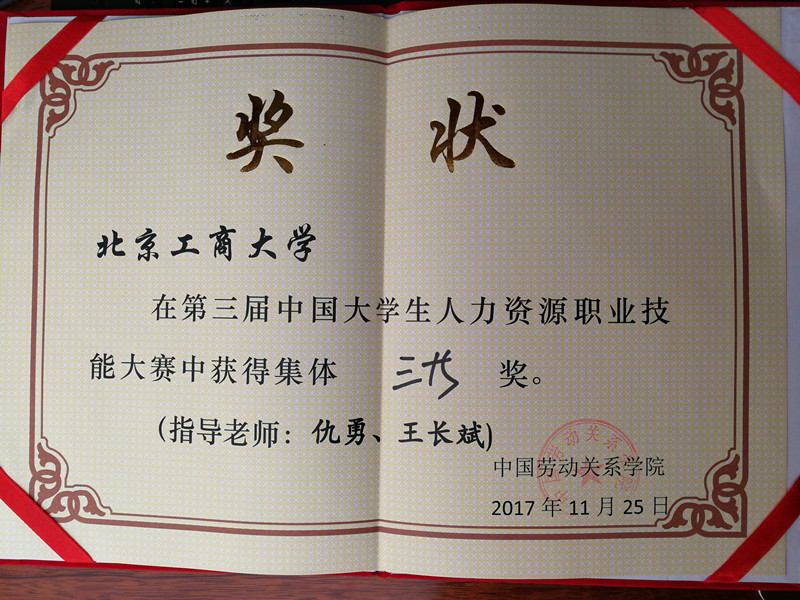 奖 状
北京工商大学
在第三届中国大学生人力资源职业技
能大赛中获得集体 三等 奖。
(指导老师：仇勇、王长斌)
中国劳动关系学院
2017 年 11 月 25 日